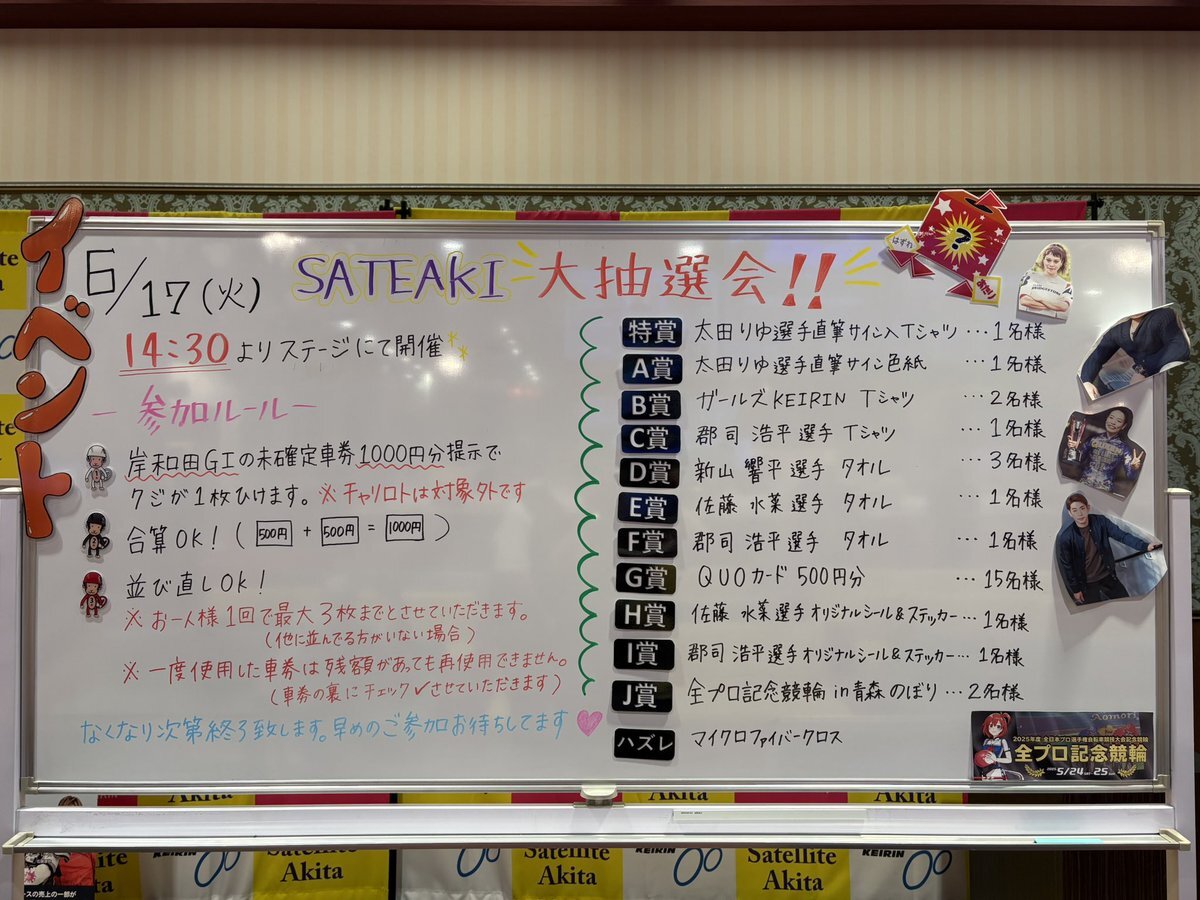 イベント
6/17(火)
SATEAKI 大抽選会!!
14:30よりステージにて開催
ー 参加ルール ー
岸和田GIの未確定車券1000円分提示で
クジが1枚ひけます。※チャリロトは対象外です
合算OK! (500円 + 500円 = 1000円)
並び直しOK!
※お一人様1回で最大3枚までとさせていただきます。
(他に並んでる方がいない場合)
※一度使用した車券は残額があっても再使用できません。
(車券の裏にチェック✓させていただきます)
なくなり次第終了致します。早めのご参加お待ちしてます
はずれ
?
あたり
特賞 太田りゆ選手直筆サイン入Tシャツ …1名様
A賞 太田りゆ選手直筆サイン色紙 …1名様
B賞 ガールズKEIRIN Tシャツ …2名様
C賞 郡司 浩平選手 Tシャツ …1名様
D賞 新山 響平選手 タオル …3名様
E賞 佐藤 水菜選手 タオル …1名様
F賞 郡司 浩平選手 タオル …1名様
G賞 QUOカード 500円分 …15名様
H賞 佐藤 水菜選手オリジナルシール&ステッカー…1名様
I賞 郡司 浩平選手オリジナルシール&ステッカー…1名様
J賞 全プロ記念競輪 in 青森 のぼり…2名様
ハズレ マイクロファイバークロス
Aomori
2025年度 全日本プロ選手権自転車競技大会記念競輪
全プロ記念競輪
5/24 25
Akita
Akita
Akita
Satellite Akita
KEIRIN
Satellite Akita
KEIRIN
Satellite Akita
KEIRIN
ースの売上の一部が